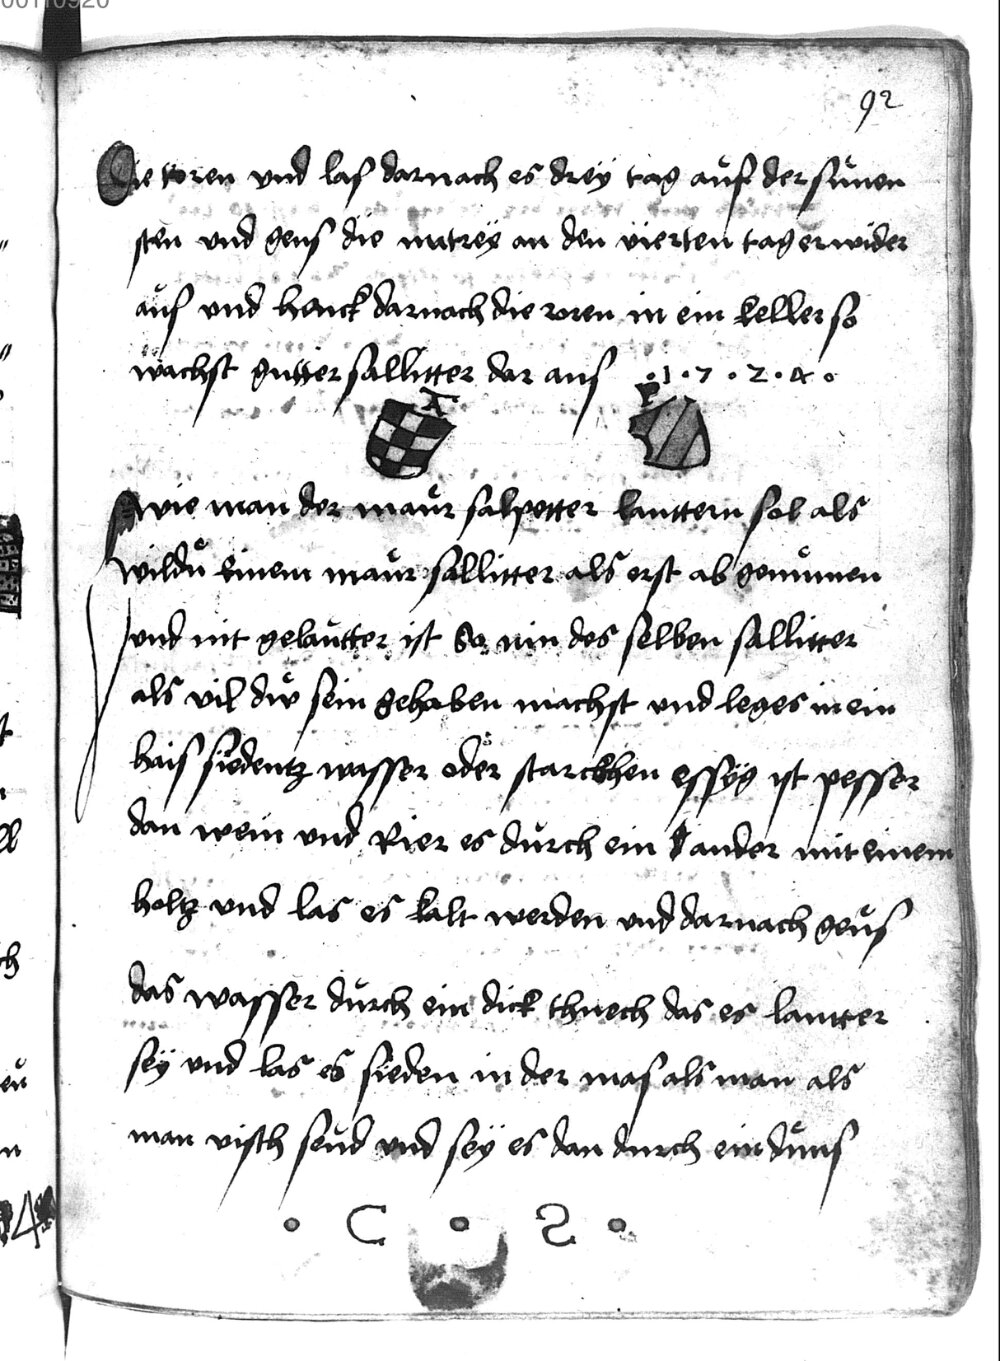 00110920
92
Die roren und las darnach es dreÿ tag auf der sunen
sten und geus die matreÿ an den vierten tag erwider
aus und henck darnach die roren in ein keller so
wachst gutter sallitter dar aus · 1 · 7 · 2 · 4 ·
wie man der maur salpetter lauttern sol als
wildu einem maur sallitter als erst ab genumen
und nit gelautter ist So nim des selben sallitter
als vil diw sein gehaben machst und leges in ein
hais siedentz wasser oder starckhen essÿg ist pesser
dan wein und Rier es durch ein ander mit einem
holtz und las es kalt werden und darnach geus
das wasser durch ein dick thuech das es lautter
seÿ und las es sieden in der mas als man als
man visch seud und seÿ es dan durch ein
· C · 2 ·